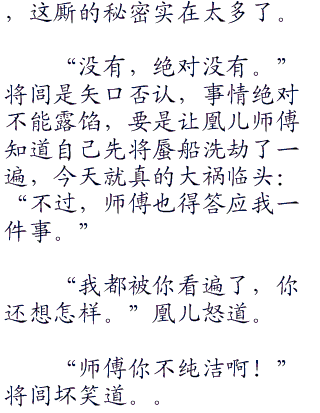 ，这厮的秘密实在太多了。
“没有，绝对没有。”
将闾是矢口否认，事情绝对
不能露馅，要是让凰儿师傅
知道自己先将蜃船洗劫了一
遍，今天就真的大祸临头：
“不过，师傅也得答应我一
件事。”
“我都被你看遍了，你
还想怎样。”凰儿怒道。
“师傅你不纯洁啊！”
将闾坏笑道。。